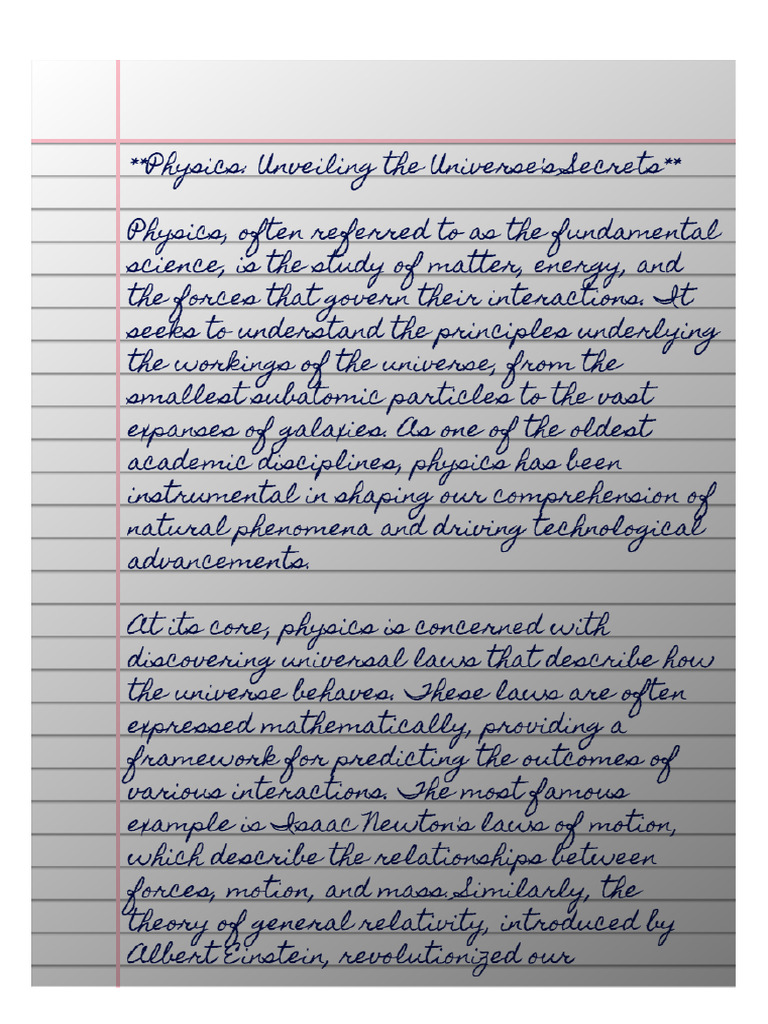 **Physics: Unveiling the Universe's Secrets**
Physics, often referred to as the fundamental
science, is the study of matter, energy, and
the forces that govern their interactions. It
seeks to understand the principles underlying
the workings of the universe, from the
smallest subatomic particles to the vast
expanses of galaxies. As one of the oldest
academic disciplines, physics has been
instrumental in shaping our comprehension of
natural phenomena and driving technological
advancements.
At its core, physics is concerned with
discovering universal laws that describe how
the universe behaves. These laws are often
expressed mathematically, providing a
framework for predicting the outcomes of
various interactions. The most famous
example is Isaac Newton's laws of motion,
which describe the relationships between
forces, motion, and mass. Similarly, the
theory of general relativity, introduced by
Albert Einstein, revolutionized our